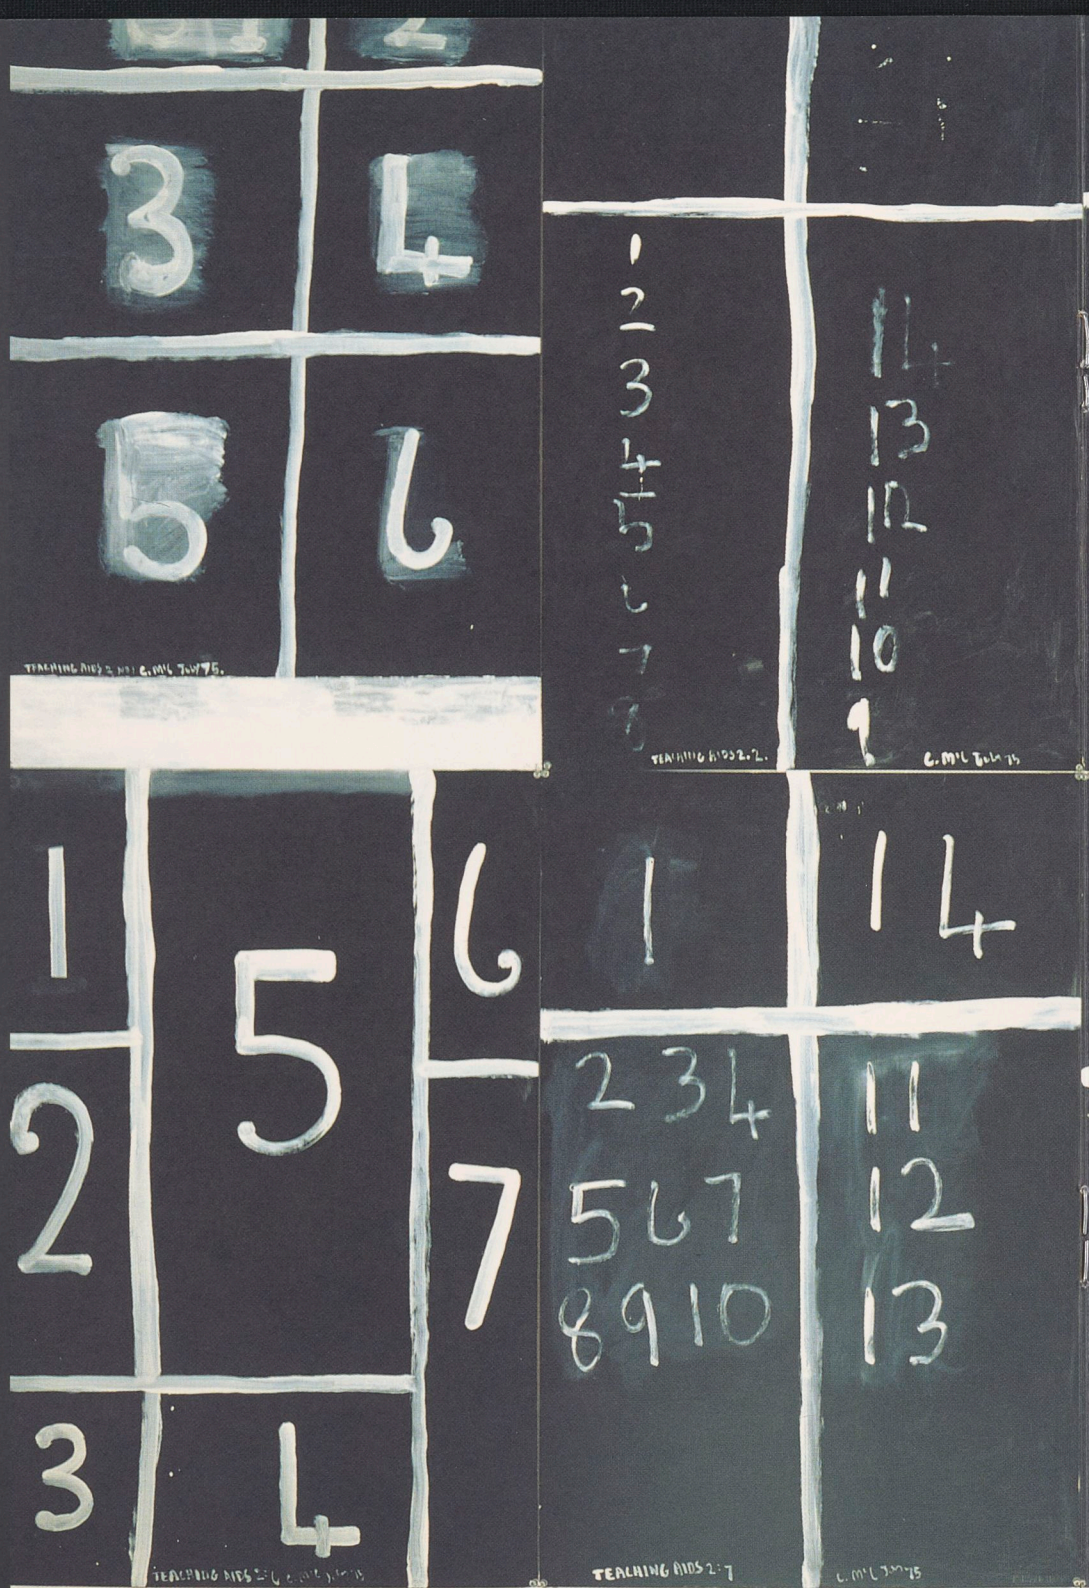 1 2
3 4
5 6
TEACHING AIDS 2 No1 C. McC July 75.
1
2
3
4
5
6
7
8
14
13
12
11
10
9
TEACHING AIDS 2.2. C. McC July 75
1
2
3
4
5
6
7
TEACHING AIDS 2:6 C McC July 75
1
14
2 3 4
5 6 7
8 9 10
11
12
13
TEACHING AIDS 2:7 C. McC July 75